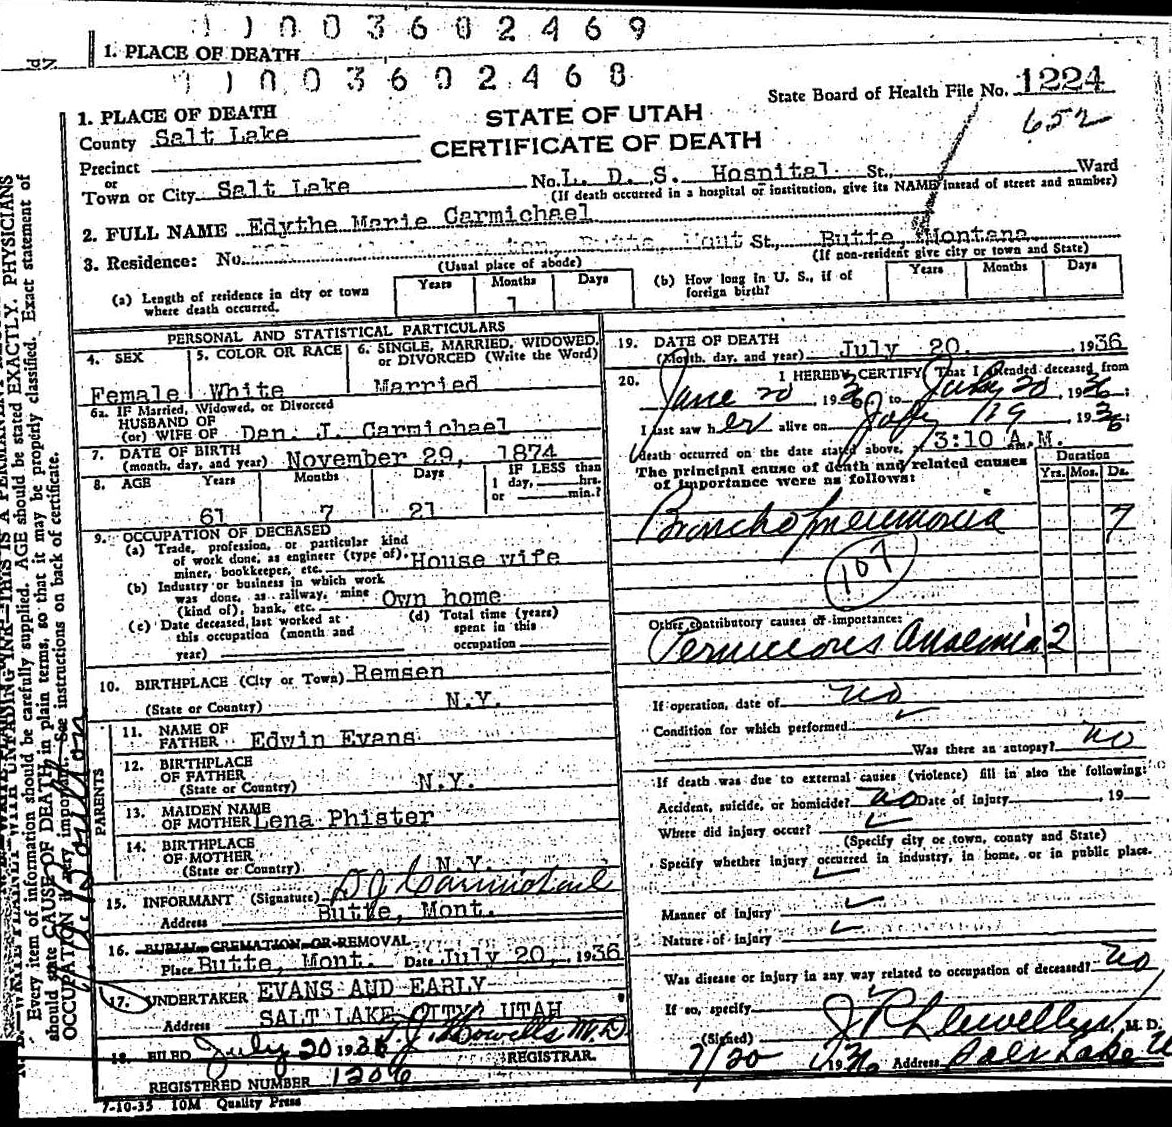 1 1 0 0 3 6 0 2 4 6 9
1. PLACE OF DEATH
1 1 0 0 3 6 0 2 4 6 8
State Board of Health File No. 1224
652
1. PLACE OF DEATH
STATE OF UTAH
County Salt Lake
CERTIFICATE OF DEATH
Precinct
or
Town or City Salt Lake No. L. D. S. Hospital St., Ward
(If death occurred in a hospital or institution, give its NAME instead of street and number)
2. FULL NAME Edythe Marie Carmichael
3. Residence: No. Butte, Mont St., Butte, Montana
(Usual place of abode) (If non-resident give city or town and State)
(a) Length of residence in city or town where death occurred. Years Months 1 Days
(b) How long in U. S., if of foreign birth? Years Months Days
PERSONAL AND STATISTICAL PARTICULARS
4. SEX 5. COLOR OR RACE 6. SINGLE, MARRIED, WIDOWED, or DIVORCED (Write the Word)
Female White Married
6a. IF Married, Widowed, or Divorced
HUSBAND OF
(or) WIFE OF Dan. J. Carmichael
7. DATE OF BIRTH
(month, day, and year) November 29, 1874
8. AGE Years Months Days IF LESS than
1 day, hrs.
or min.?
61 7 21
9. OCCUPATION OF DECEASED
(a) Trade, profession, or particular kind
of work done, as engineer (type of),
miner, bookkeeper, etc. House wife
(b) Industry or business in which work
was done, as railway, mine
(kind of), bank, etc. Own home
(c) Date deceased last worked at
this occupation (month and
year)
(d) Total time (years)
spent in this
occupation
10. BIRTHPLACE (City or Town) Remsen
(State or Country) N.Y.
PARENTS
11. NAME OF
FATHER Edwin Evans
12. BIRTHPLACE
OF FATHER
(State or Country) N.Y.
13. MAIDEN NAME
OF MOTHER Lena Phister
14. BIRTHPLACE
OF MOTHER
(State or Country) N.Y.
15. INFORMANT (Signature) D J Carmichael
Address Butte, Mont.
16. BURIAL CREMATION OR REMOVAL
Place Butte, Mont. Date July 20, 1936
17. UNDERTAKER EVANS AND EARLY
Address SALT LAKE CITY, UTAH
18. FILED July 20 1936 T. J. Howells M.D.
REGISTRAR.
REGISTERED NUMBER 1206
7-10-35 10M Quality Press
19. DATE OF DEATH
(Month, day, and year) July 20, 1936
20. I HEREBY CERTIFY That I attended deceased from
June 20, 1936 to July 20, 1936
I last saw her alive on July 19 1936;
death occurred on the date stated above, 3:10 A.M.
The principal cause of death and related causes
of importance were as follows:
Duration
Yrs. Mos. Ds.
Bronchopneumonia 7
107
Other contributory causes of importance:
Pernicious Anaemia 2
If operation, date of no
Condition for which performed
Was there an autopsy? no
If death was due to external causes (violence) fill in also the following:
Accident, suicide, or homicide? no Date of injury , 19
Where did injury occur?
(Specify city or town, county and State)
Specify whether injury occurred in industry, in home, or in public place.
Manner of injury
Nature of injury
Was disease or injury in any way related to occupation of deceased? no
If so, specify
(Signed) J. P. Llewellyn, M. D.
7/20 1936 Address Salt Lake U
Every item of information should be carefully supplied. AGE should be stated EXACTLY. PHYSICIANS
should state CAUSE OF DEATH in plain terms, so that it may be properly classified. Exact statement of
OCCUPATION is very important. See instructions on back of certificate.